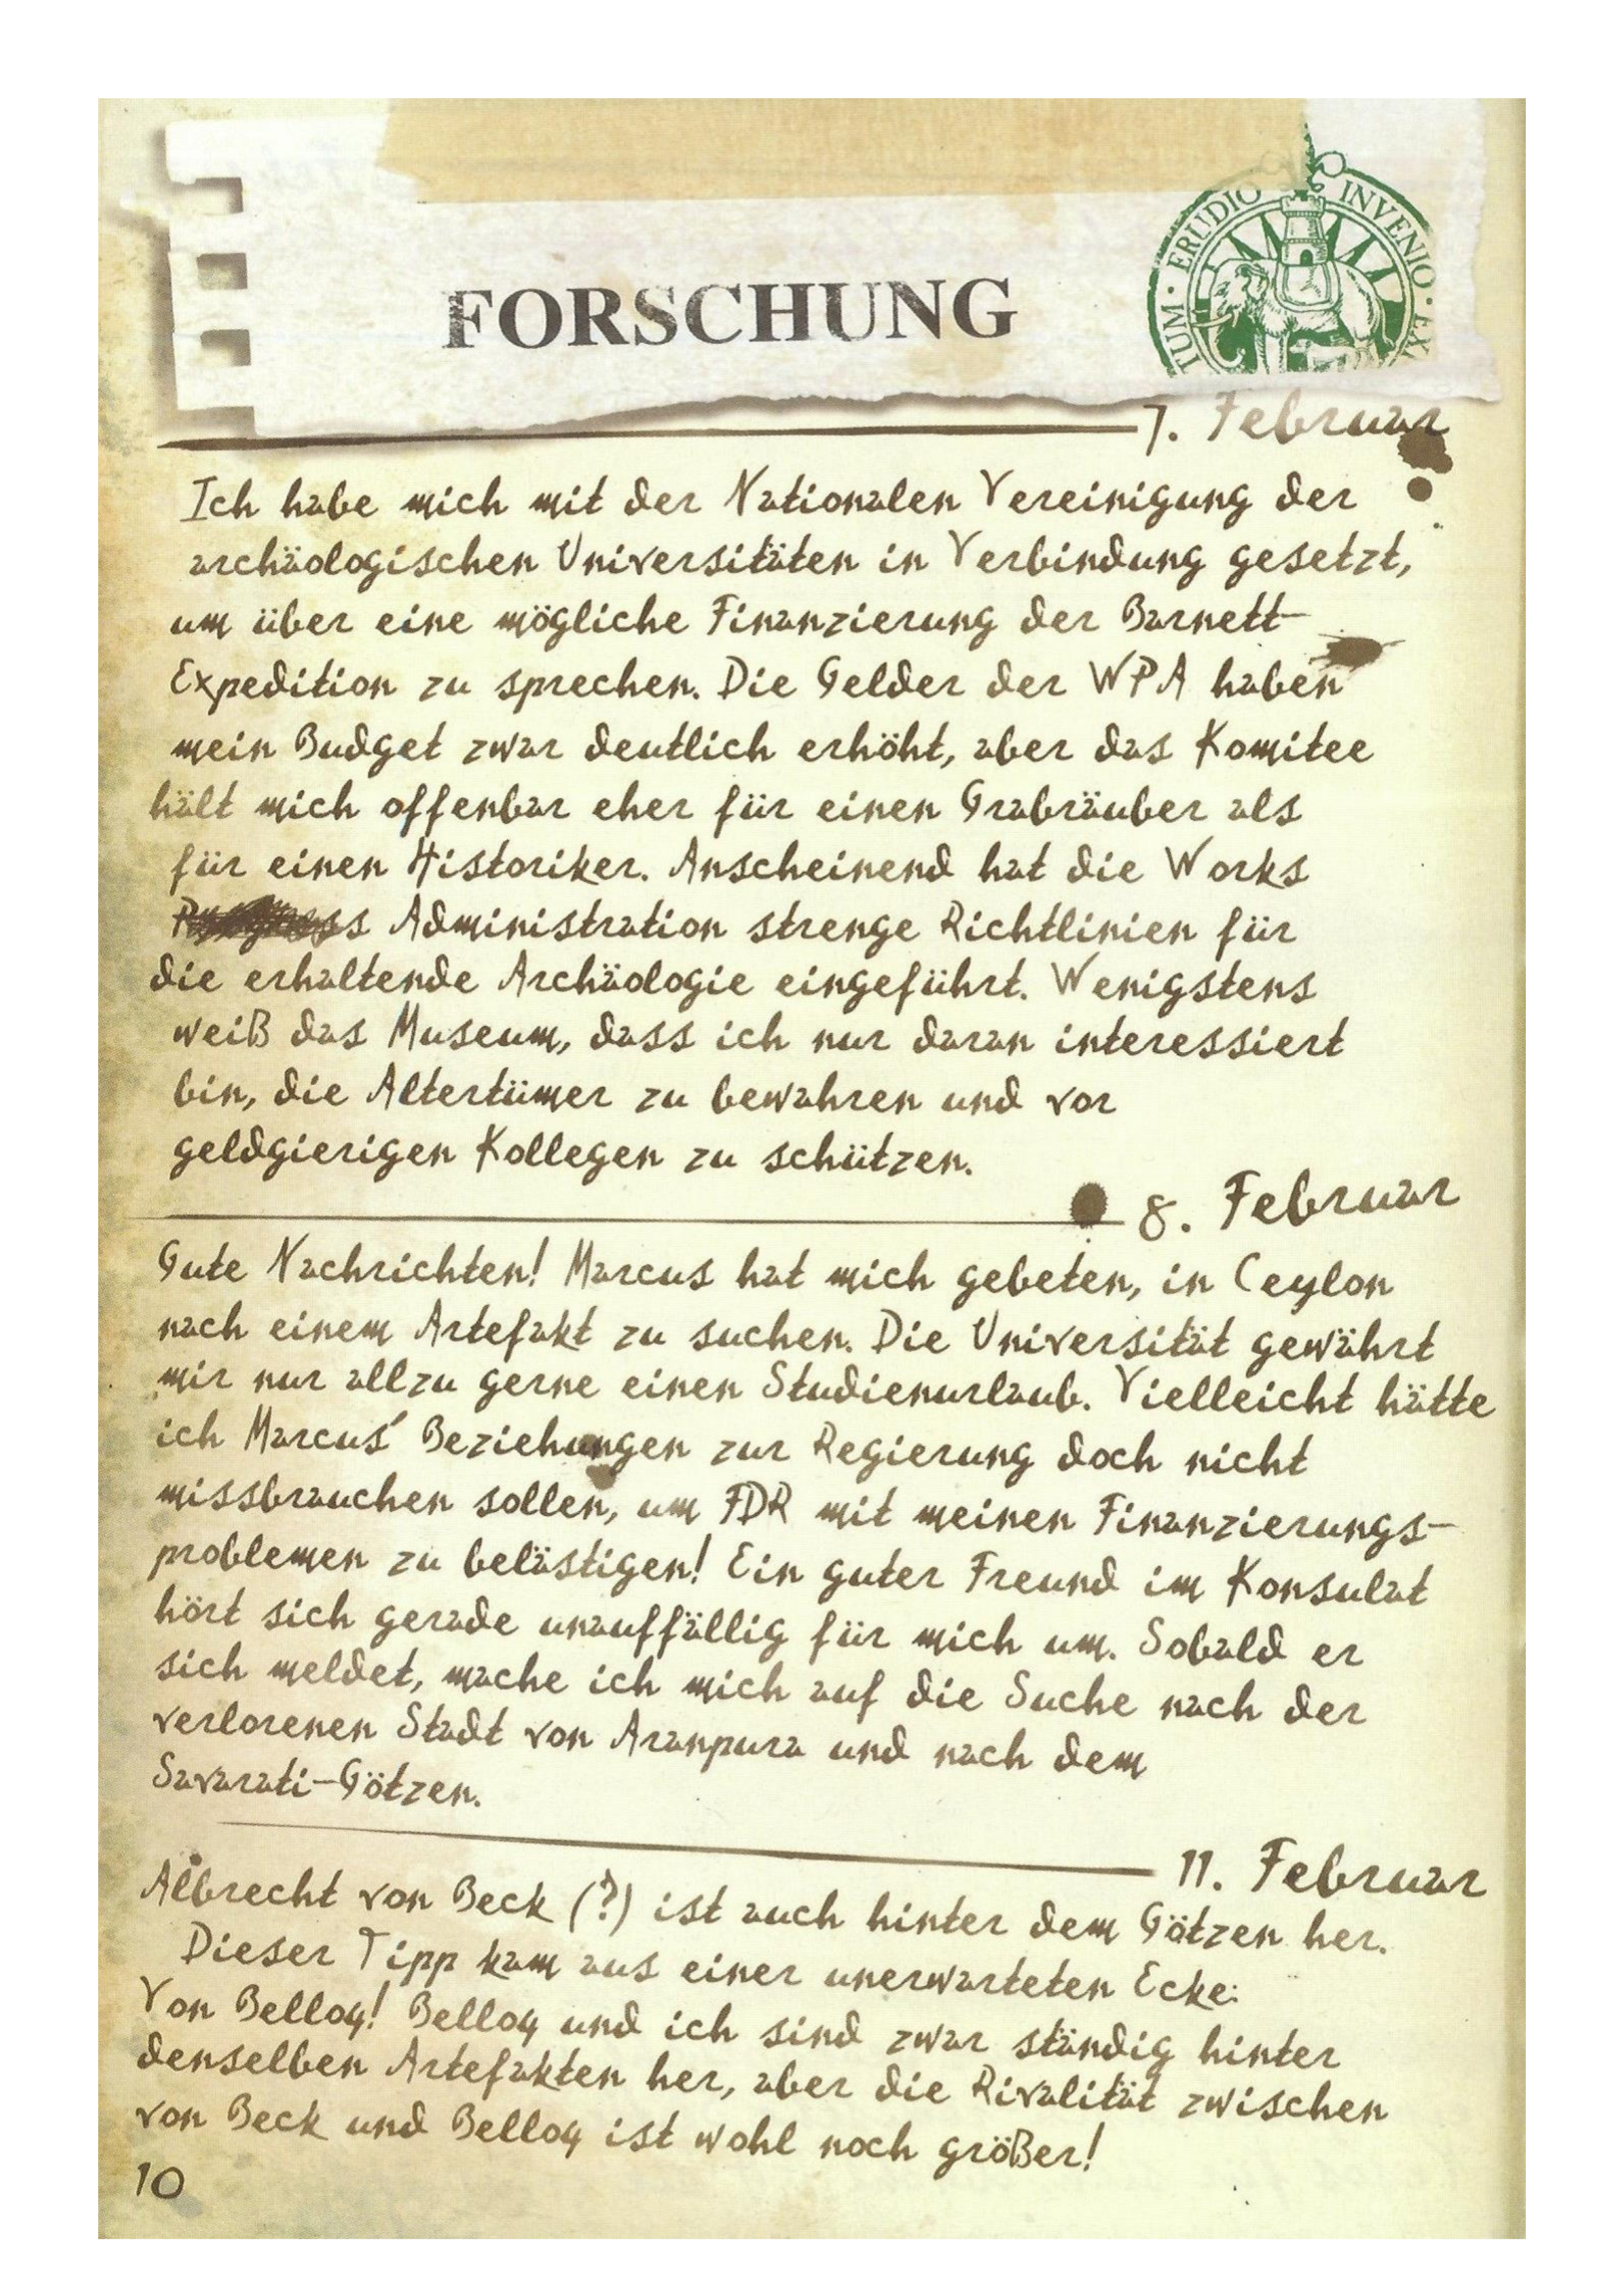 TUM · ERUDIO INVENIO · EX
FORSCHUNG
7. Februar
Ich habe mich mit der Nationalen Vereinigung der
archäologischen Universitäten in Verbindung gesetzt,
um über eine mögliche Finanzierung der Barnett-
Expedition zu sprechen. Die Gelder der WPA haben
mein Budget zwar deutlich erhöht, aber das Komitee
hält mich offenbar eher für einen Grabräuber als
für einen Historiker. Anscheinend hat die Works
Administration strenge Richtlinien für
die erhaltende Archäologie eingeführt. Wenigstens
weiß das Museum, dass ich nur daran interessiert
bin, die Altertümer zu bewahren und vor
geldgierigen Kollegen zu schützen.
8. Februar
Gute Nachrichten! Marcus hat mich gebeten, in Ceylon
nach einem Artefakt zu suchen. Die Universität gewährt
mir nur allzu gerne einen Studienurlaub. Vielleicht hätte
ich Marcus' Beziehungen zur Regierung doch nicht
missbrauchen sollen, um FDR mit meinen Finanzierungs-
problemen zu belästigen! Ein guter Freund im Konsulat
hört sich gerade unauffällig für mich um. Sobald er
sich meldet, mache ich mich auf die Suche nach der
verlorenen Stadt von Aranpura und nach dem
Savarati-Götzen.
11. Februar
Albrecht von Beck (?) ist auch hinter dem Götzen her.
Dieser Tipp kam aus einer unerwarteten Ecke:
Von Belloq! Belloq und ich sind zwar ständig hinter
denselben Artefakten her, aber die Rivalität zwischen
von Beck und Belloq ist wohl noch größer!
10